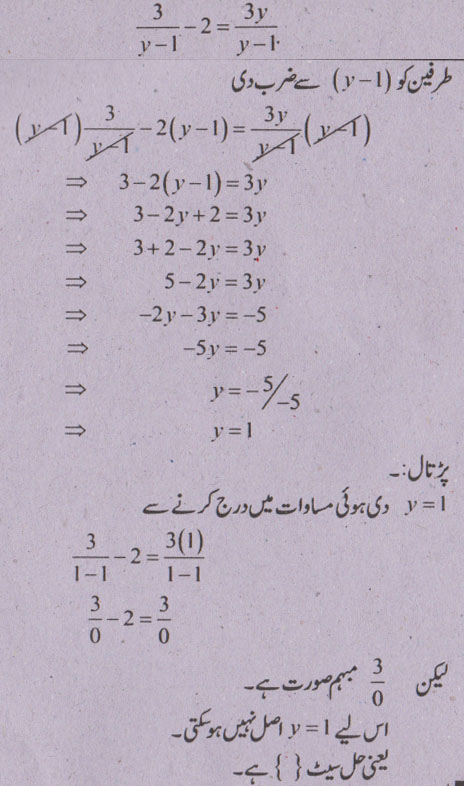 3/(y−1) − 2 = 3y/(y−1)
طرفین کو (y−1) سے ضرب دی
(y−1) 3/(y−1) − 2(y−1) = 3y/(y−1) (y−1)
⇒ 3−2(y−1) = 3y
⇒ 3−2y+2 = 3y
⇒ 3+2−2y = 3y
⇒ 5−2y = 3y
⇒ −2y−3y = −5
⇒ −5y = −5
⇒ y = −5/−5
⇒ y = 1
پڑتال:۔
y = 1 دی ہوئی مساوات میں درج کرنے سے
3/(1−1) − 2 = 3(1)/(1−1)
3/0 − 2 = 3/0
لیکن 3/0 مبہم صورت ہے۔
اس لیے y = 1 اصل نہیں ہو سکتی۔
یعنی حل سیٹ { } ہے۔